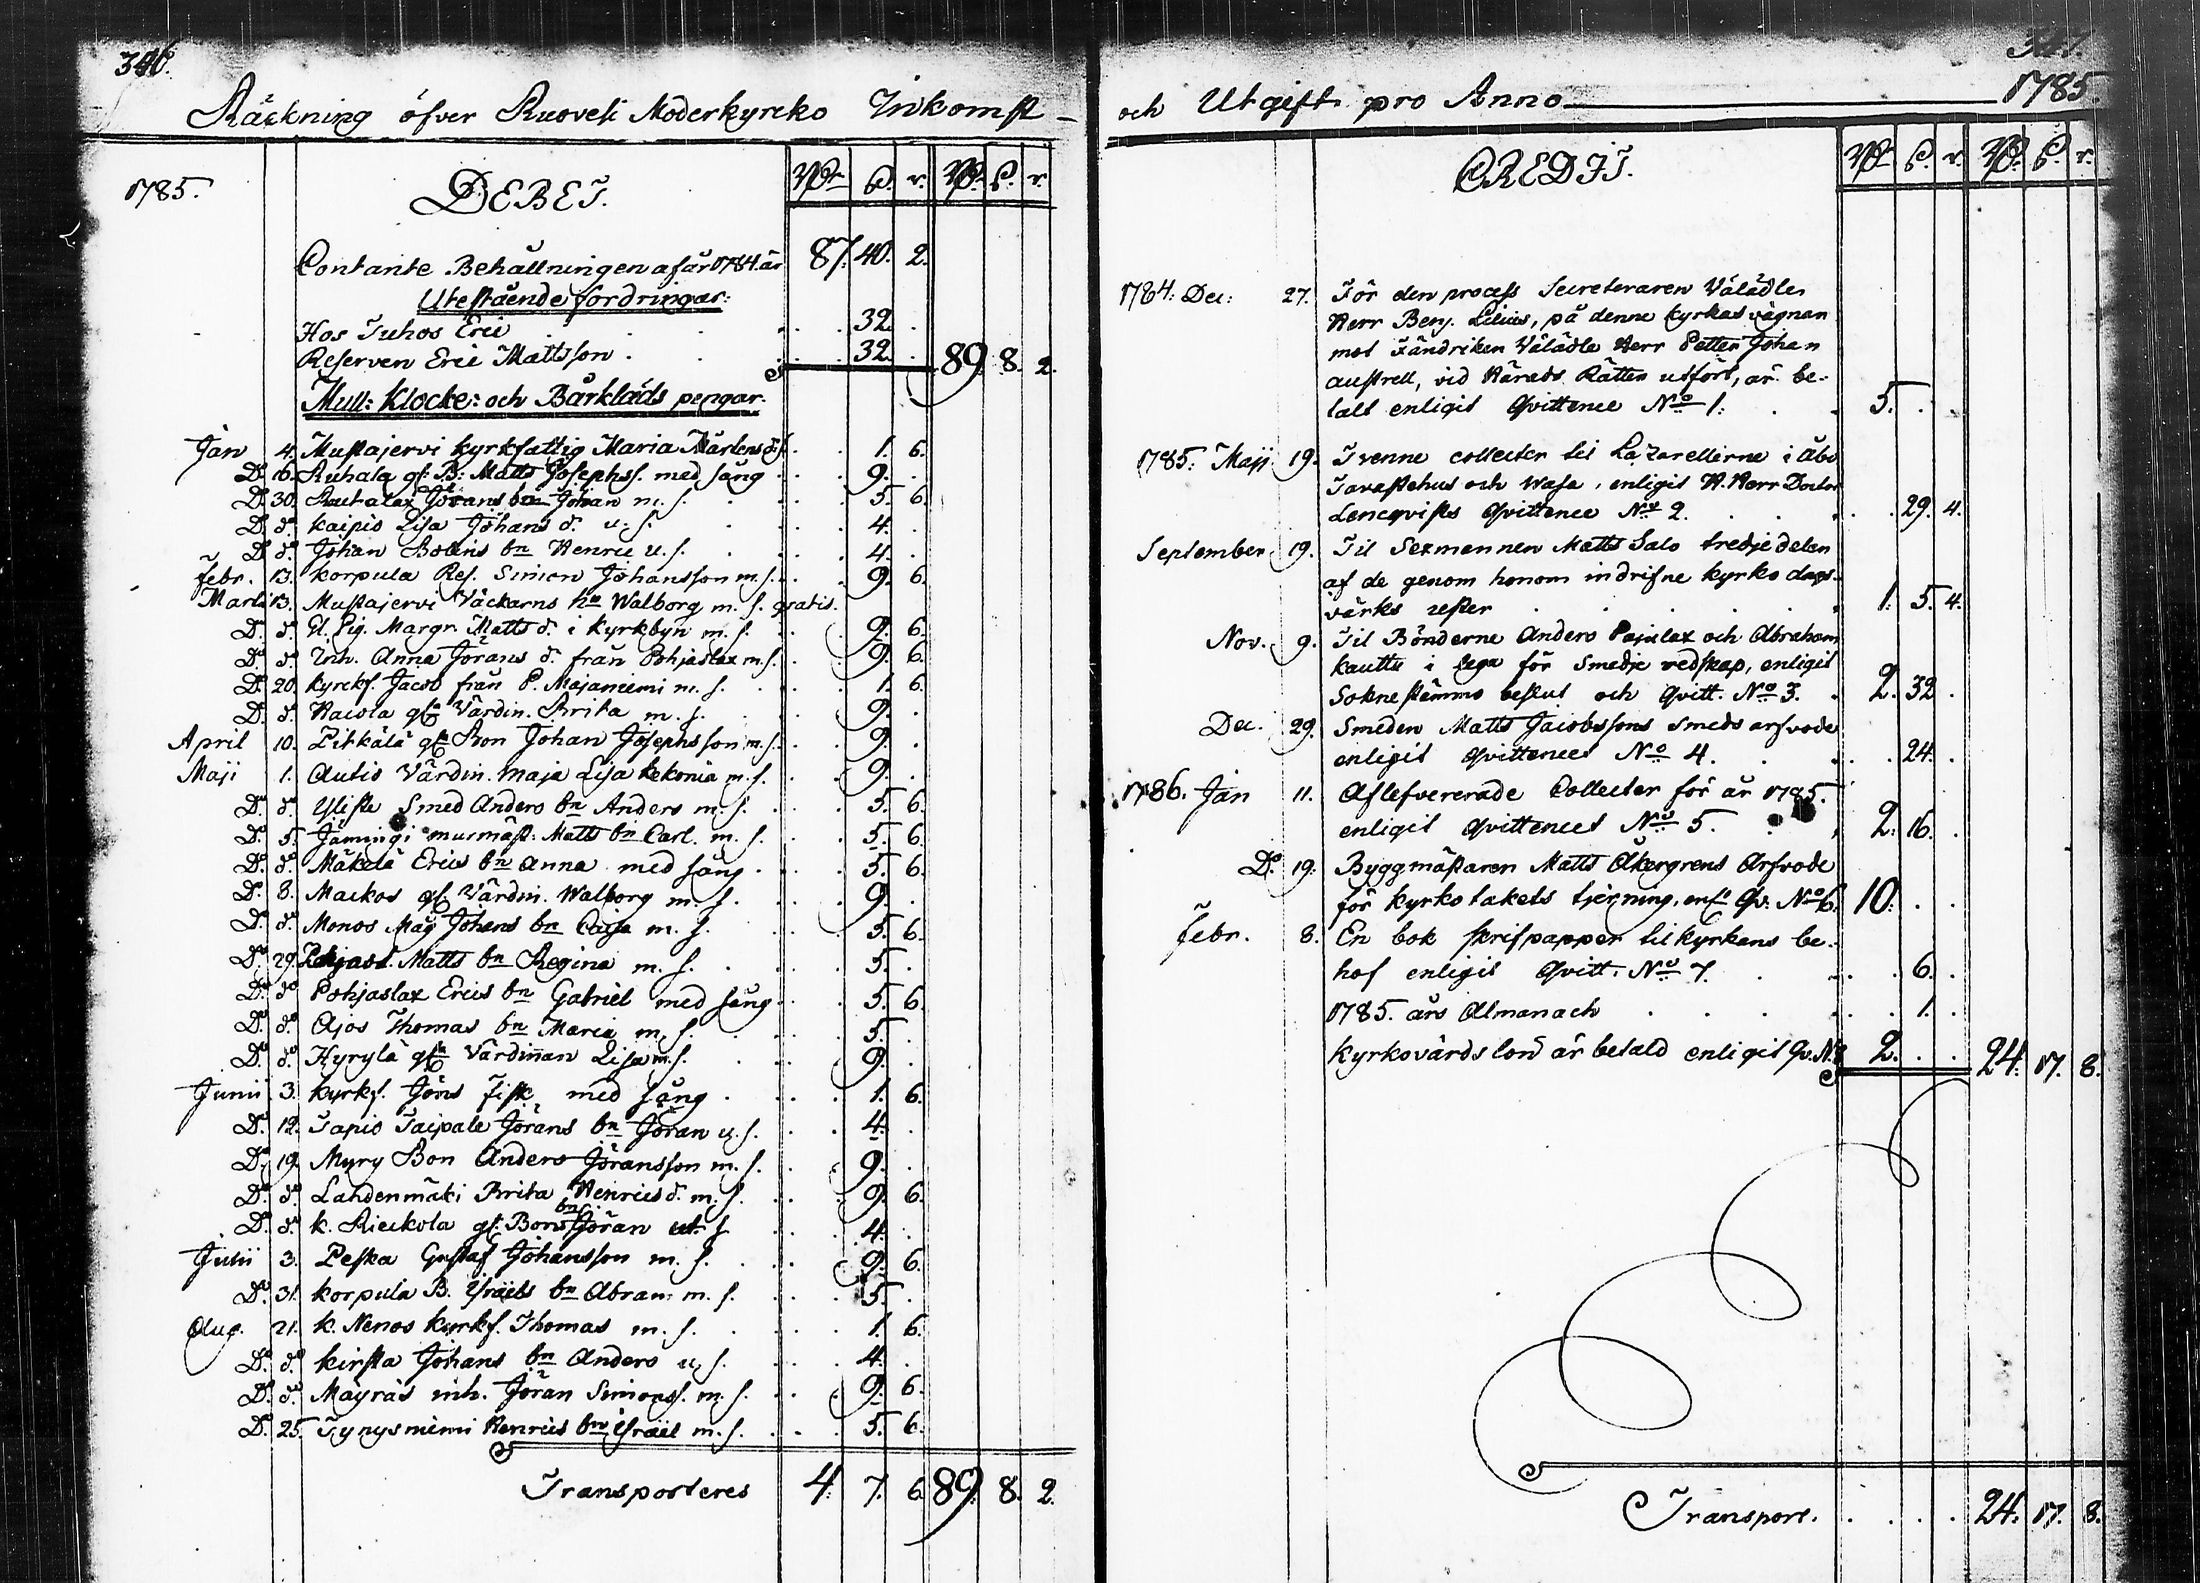 346.
Räckning öfver Ruovesi Moderkyrcko Inkomst
1785.
DEBET.
Rdr ß. r. Rdr ß. r.
Contante Behållningen af år 1784. är 87. 40. 2.
Utestående fordringar:
Hos Juhos Eric . . . 32. .
Reserven Eric Mattsson . . . 32. . 89. 8. 2.
Mull: Klocke: och Bårkläds pengar.
Jan 4. Mustajervi kyrkfattig Maria Mårtens d. . . 1. 6.
Do 16. Ruhala gl: B: Matts Josephss. med sång . . 9. .
D. 30. Görans bn Johan m. s. . . 5. 6.
D. do kaipio Lisa Johans d. u. s. . . 4. .
D. do Johan Bolins bn Henric u. s. . . 4. .
Febr. 13. Korpula Res. Simon Johansson m. s. . . 9. 6.
Marti 13. Mustajervi Väckarns hu Walborg m. s. gratis.
D. do Pig. Margr. Matts d. i Kyrkbyn m. s. . . 9. 6.
Do do Inh. Anna Jörans d. från Pohjaslax m. s. . 9. 6.
Do 20. Kyrckf. Jacob från P. Majaniemi m. s. . . 1. 6.
D. do gla Värdin. Brita m. s. . . 9. .
April 10. Pitkälä gl Bon Johan Josephsson m. s. . . 9. .
Maji 1. Autio Värdin. Maja Lisa Kekonia m. s. . . 9. .
Do do Yliste Smed Anders bn Anders m. s. . . 5. 6.
Do 5. Jäminqi murmäst: Matts bn Carl. m. s. . . 5. 6.
Do do Mäkelä Erics bn Anna med sång . . 5. 6.
Do 8. Mackos gl Värdin. Walborg m. s. . . 9. .
Do do Monos Mag Johans bn Caisa m. s. . . 5. 6.
Do 29. Matts bn Regina m. s. . . 5. .
Do do Pohjaslax Erics bn Gabriel med sång . . 5. 6.
Do do Ajos Thomas bn Maria m. s. . . 5. .
Do do Hyrylä gla Värdinnan Lisa m. s. . . 9. .
Junii 3. Kyrkf. Jöns Fisk med sång . . 1. 6.
Do 12. Tapio Taipale Jörans bn Jöran u. s. . . 4. .
Do 19. Myry Bon Anders Jöransson m. s. . . 9. .
Do do Lahdenmäki Brita Henrics d. m. s. . . 9. 6.
Do do K. Rieckola gl: Bons bn Jöran ut. s. . . 4. .
Julii 3. Peska Gustaf Johansson m. s. . . 9. 6.
Do 31. Korpula B. Israels bn Abram: m. s. . . 5. .
Aug. 21. K. Nenos Kyrkf. Thomas m. s. . . 1. 6.
Do do Kirsta Johans bn Anders u. s. . . 4. .
Do do Mäyräs inh. Jöran Simonss. m. s. . . 9. 6.
Do 25. Tynysniemi Henrics bn Israel m. s. . . 5. 6.
Transporteres 4. 7. 6. 89. 8. 2.
347.
och Utgift pro Anno 1785.
CREDIT.
Rdr ß. r. Rdr ß. r.
1784: Dec: 27. För den process Secreteraren Välädle
Herr Benj. Lilius, på denne kyrkas vägnan
mot Fändriken Välädle Herr Petter Johan
austrell, vid Härads Rätten utfört, är be-
talt enligit Qvittence No 1: . . 5. . .
1785: Maji 19. Tvenne collecter til Lazaretterne i Åbo
Tavastehus och Wasa, enligit H. Herr Doctor
Lencqvists Qvittence No 2. . . . 29. 4.
September 19. Til Sexmannen Matts Salo tredje delen
af de genom honom indrifne kyrko dags-
värks rester . . . . 1. 5. 4.
Nov. 9. Til Bönderne Anders Pajulax och Abraham
Kauttu i lega för Smedje redskap, enligit
Sokne stämmo beslut och Qvitt. No 3. . 2. 32. .
Dec. 29. Smeden Matts Jacobssons smeds arfvode
enligit Qvittencet No 4. . . . 24. .
1786. Jan 11. Aflefvererade Collecter för år 1785.
enligit Qvittencet No 5. . . 2. 16. .
Do 19. Byggmästaren Matts Åkergrens Arfvode
för Kyrko takets tjerning, enl Qv. No 6. 10. . .
Febr. 8. En bok skrifpapper til kyrkans be-
hof enligit Qvitt: No 7. . . . 6. .
1785. års Almanach . . . . . 1. .
Kyrkovärds lön är betald enligit Qv. N. 8 2. . . 24. 17. 8.
Transport. . . . . 24. 17. 8.